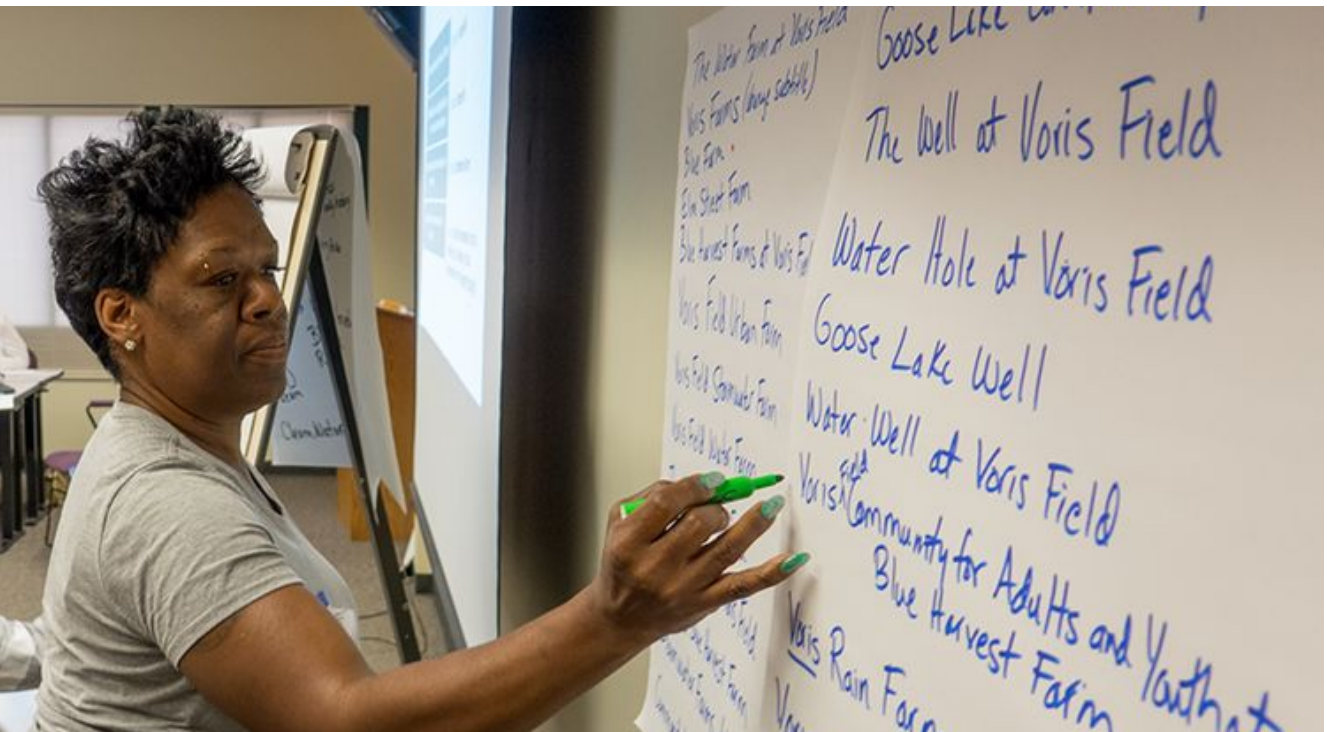 The Water Farm at Voris Field
Voris Farms (change subtitle)
Blue Farm
Elm Street Farm
Blue Harvest Farms at Voris
Voris Field Urban Farm
Voris Field Stormwater Farm
Voris Field Water Farm
Field
Harvest Farm
Goose Lake
The Well at Voris Field
Water Hole at Voris Field
Goose Lake Well
Water Well at Voris Field
Voris Field Community for Adults and Youth at
Blue Harvest Farm
Voris Rain Farm
Clean Water